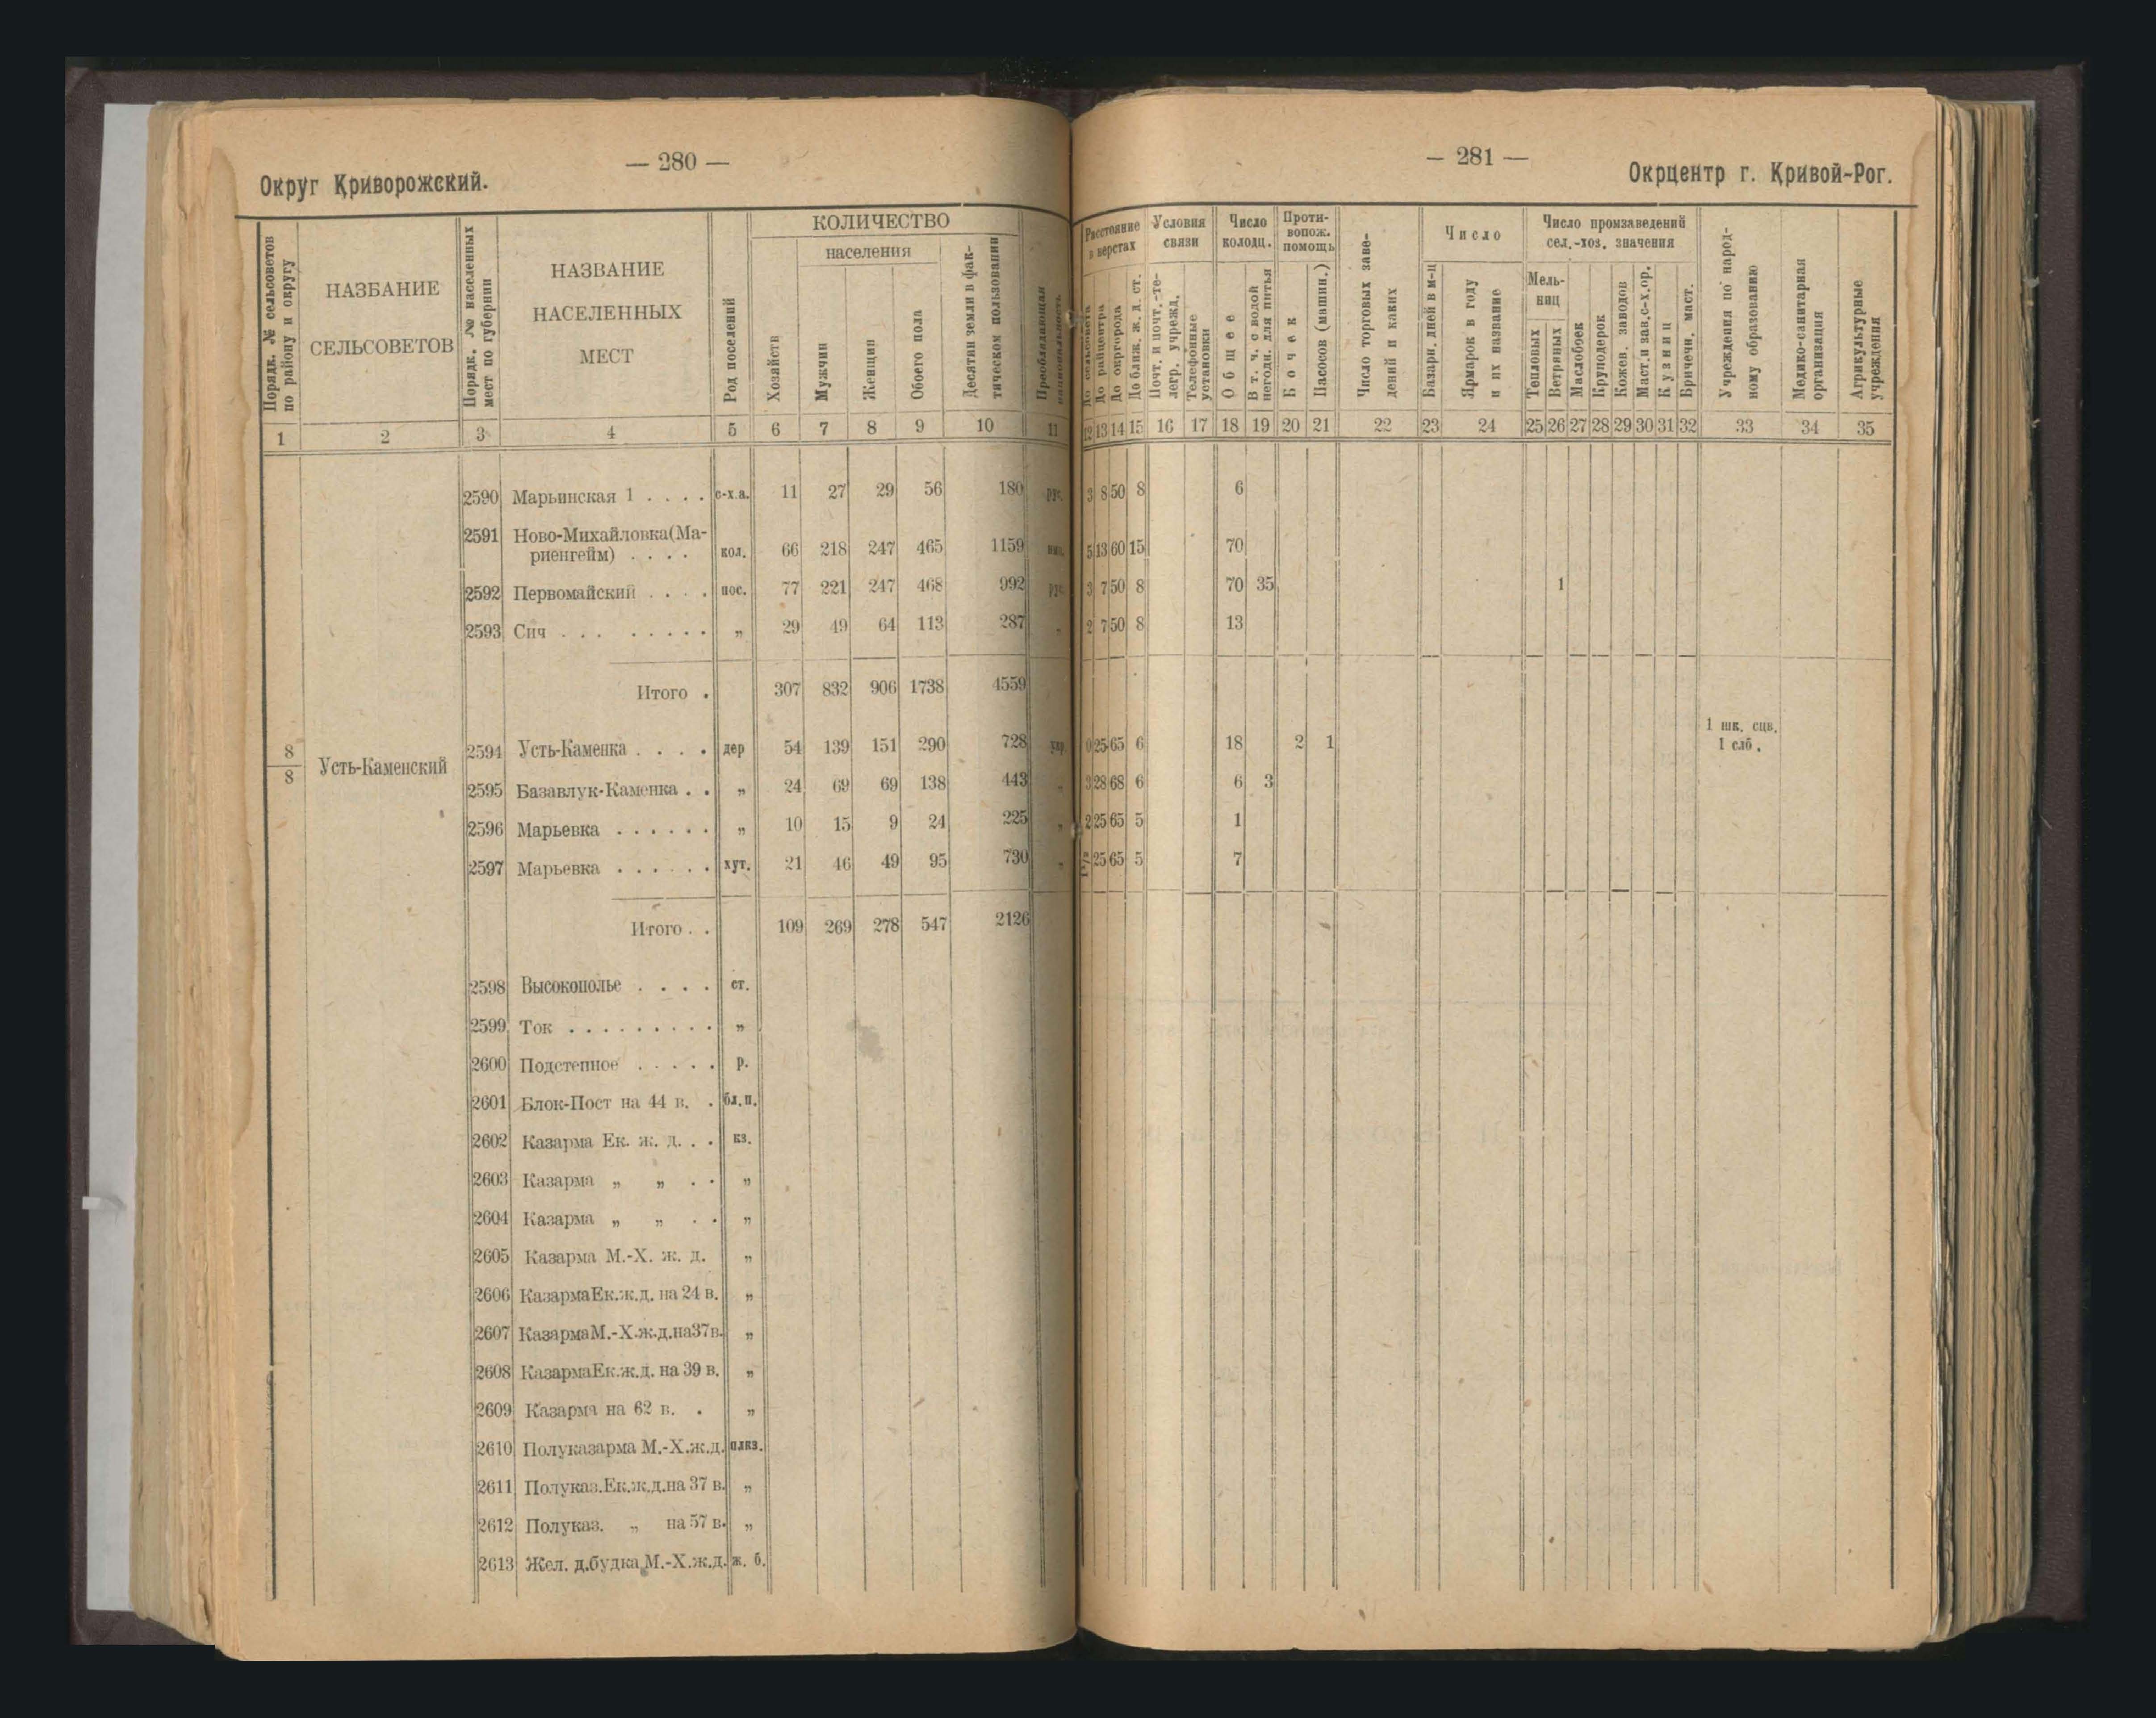 — 280 —
Округ Криворожский.
Порядк. № сельсоветов по району и округу
НАЗВАНИЕ СЕЛЬСОВЕТОВ
Порядк. № населенных мест по губернии
НАЗВАНИЕ НАСЕЛЕННЫХ МЕСТ
Род поселений
КОЛИЧЕСТВО
Хозяйств
населения
Мужчин
Женщин
Обоего пола
Десятин земли в фактическом пользовании
Преобладающая национальность
1 2 3 4 5 6 7 8 9 10 11
2590 Марьинская 1 . . . . с-х.а. 11 27 29 56 180 рус.
2591 Ново-Михайловка(Ма-
риенгейм) . . . . кол. 66 218 247 465 1159 нм.
2592 Первомайский . . . . пос. 77 221 247 468 992 рус.
2593 Сич . . . . . . . . „ 29 49 64 113 287 „
Итого . 307 832 906 1738 4559
8/8 Усть-Каменский 2594 Усть-Каменка . . . . дер 54 139 151 290 728 укр.
2595 Базавлук-Каменка . . „ 24 69 69 138 443 „
2596 Марьевка . . . . . . „ 10 15 9 24 225 „
2597 Марьевка . . . . . . хут. 21 46 49 95 730 „
Итого . . 109 269 278 547 2126
2598 Высокополье . . . . ст.
2599 Ток . . . . . . . . . „
2600 Подстепное . . . . . р.
2601 Блок-Пост на 44 в. . бл.п.
2602 Казарма Ек. ж. д. . . кз.
2603 Казарма „ „ . . „
2604 Казарма „ „ . . „
2605 Казарма М.-Х. ж. д. „
2606 КазармаЕк.ж.д. на 24 в. „
2607 КазармаМ.-Х.ж.д.на37в. „
2608 КазармаЕк.ж.д. на 39 в. „
2609 Казарма на 62 в. . „
2610 Полуказарма М.-Х.ж.д. плкз.
2611 Полуказ.Ек.ж.д.на 37 в. „
2612 Полуказ. „ на 57 в. „
2613 Жел. д.будка М.-Х.ж.д. ж. б.
— 281 —
Окрцентр г. Кривой-Рог.
Расстояние в верстах
До сельсовета
До райцентра
До окргорода
До ближ. ж. д. ст.
Условия связи
Почт. и почт.-телегр. учрежд.
Телефонные установки
Число колодц.
Общее
В т. ч. с водой негодн. для питья
Противопож. помощь
Бочек
Насосов (машин.)
Число торговых заведений и каких
Число
Базарн. дней в м-ц
Ярмарок в году и их название
Число промзаведений сел.-хоз. значения
Мельниц
Тепловых
Ветряных
Маслобоек
Круподерок
Кожев. заводов
Маст.и зав.с-х.ор.
Кузниц
Бричечн. маст.
Учреждения по народному образованию
Медико-санитарная организация
Агрикультурные учреждения
12 13 14 15 16 17 18 19 20 21 22 23 24 25 26 27 28 29 30 31 32 33 34 35
3 8 50 8 6
5 13 60 15 70
3 7 50 8 70 35 1
2 7 50 8 13
0 25 65 6 18 2 1 1 шк. сцв.
1 слб.
3 28 68 6 6 3
2 25 65 5 1
25 65 5 7